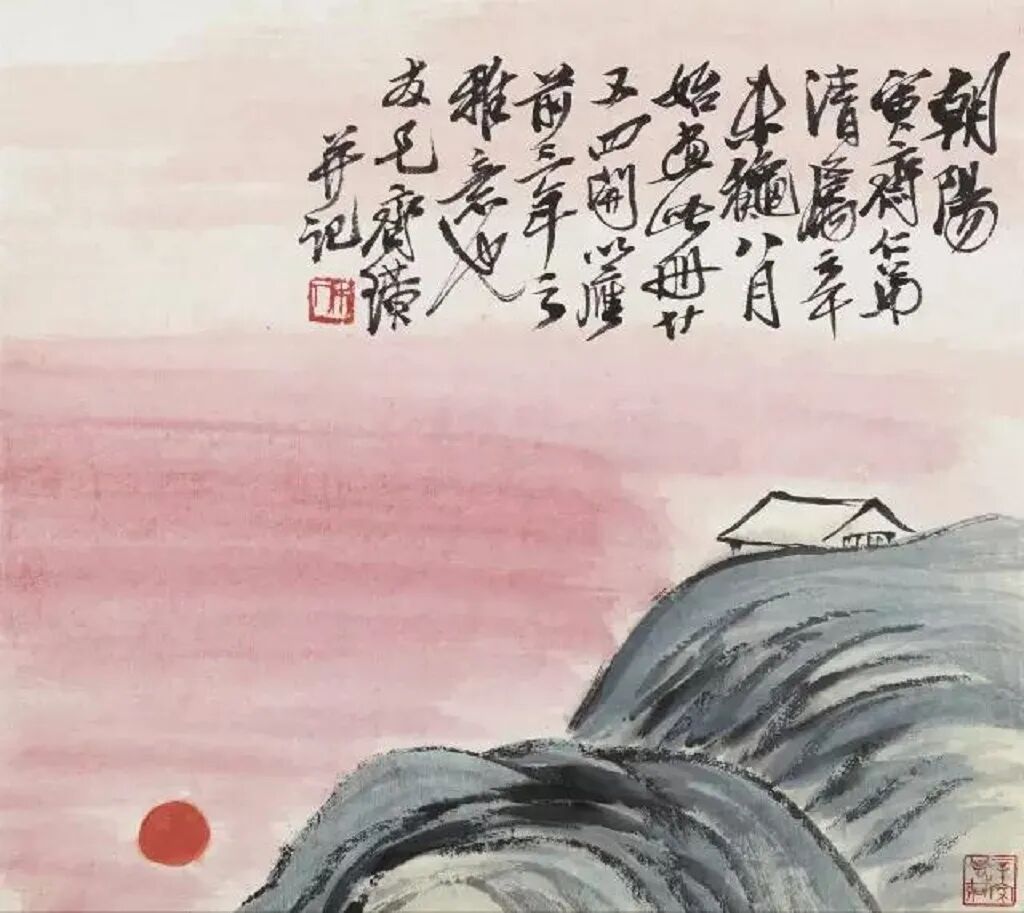 朝陽
寅齋仁弟
清屬辛
未穐八月
始畫此冊廿
又四開以應
前三年之
雅意也
友兄齊璜
并記